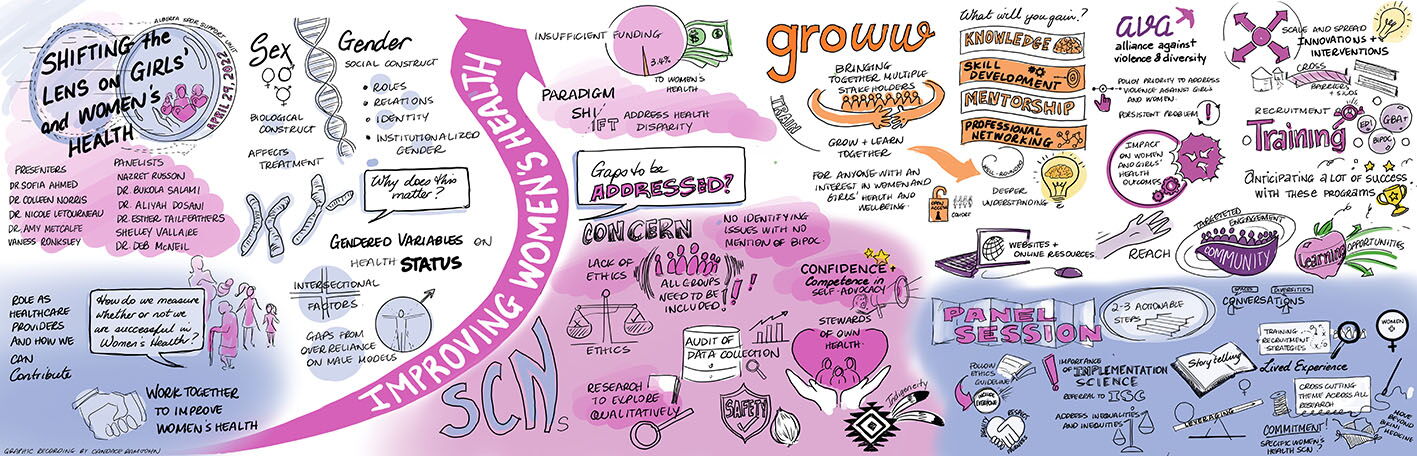 ALBERTA SPOR SUPPORT UNIT
SHIFTING the
LENS ON GIRLS'
and WOMEN'S
HEALTH
APRIL 29, 2022
PRESENTERS
DR. SOFIA AHMED
DR. COLLEEN NORRIS
DR. NICOLE LETOURNEAU
DR. AMY METCALFE
VANESS RONKSLEY
PANELISTS
NAZRET RUSSON
DR. BUKOLA SALAMI
DR. ALIYAH DOSANI
DR. ESTHER TAILFEATHERS
SHELLEY VALLAIRE
DR. DEB McNEIL
ROLE AS
HEALTHCARE
PROVIDERS
AND HOW WE
CAN
Contribute
How do we measure
whether or not we
are successful in
Women's Health?
WORK TOGETHER
TO IMPROVE
WOMEN'S HEALTH
GRAPHIC RECORDING BY CANDACE RAMJOHN
Sex
BIOLOGICAL
CONSTRUCT
AFFECTS
TREATMENT
Gender
SOCIAL CONSTRUCT
• ROLES
• RELATIONS
• IDENTITY
• INSTITUTIONALIZED
GENDER
Why does this
matter?
GENDERED VARIABLES ON
HEALTH STATUS
INTERSECTIONAL
FACTORS
GAPS FROM
OVER RELIANCE
ON MALE MODELS
IMPROVING WOMEN'S HEALTH
INSUFFICIENT FUNDING
3.4%
$
$
TO WOMEN'S
HEALTH
PARADIGM
SHI
IFT
ADDRESS HEALTH
DISPARITY
Gaps to be
ADDRESSED?
CONCERN
NO IDENTIFYING
ISSUES WITH NO
MENTION OF BIPOC.
LACK OF
ETHICS
ALL GROUPS
NEED TO BE
INCLUDED!
ETHICS
SCNs
AUDIT OF
DATA COLLECTION
RESEARCH
TO EXPLORE
QUALITATIVELY
SAFETY
CONFIDENCE +
Competence in
SELF-ADVOCACY
STEWARDS
OF OWN
HEALTH
Indigeneity
groww
TRAIN
BRINGING
TOGETHER MULTIPLE
STAKEHOLDERS
GROW + LEARN
TOGETHER
FOR ANYONE WITH AN
INTEREST IN WOMEN AND
GIRLS' HEALTH AND
WELLBEING
What will you gain?
KNOWLEDGE
SKILL
DEVELOPMENT
MENTORSHIP
PROFESSIONAL
NETWORKING
WELL-ROUNDED
DEEPER
UNDERSTANDING
OPEN
ACCESS
COHORT
WEBSITES +
ONLINE RESOURCES
ava
alliance against
violence & diversity
POLICY PRIORITY TO ADDRESS
VIOLENCE AGAINST GIRLS
AND WOMEN.
PERSISTENT PROBLEM
!
IMPACT
ON WOMEN
AND GIRLS'
HEALTH
OUTCOMES
SCALE AND SPREAD
INNOVATIONS +
INTERVENTIONS
CROSS
BARRIERS
+ SILOS
RECRUITMENT
Training
EDI
GBA+
BIPOC
ANTICIPATING A LOT OF SUCCESS
WITH THESE PROGRAMS
REACH
TARGETED ENGAGEMENT
COMMUNITY
Learning
OPPORTUNITIES
PANEL
SESSION
2-3 ACTIONABLE
STEPS
SPACES
DIVERSITIES
CONVERSATIONS
FOLLOW
ETHICS
GUIDELINE
INCLUDE
EVERYONE
RESPECT
IMPORTANCE
OF IMPLEMENTATION
SCIENCE
REFERRAL TO ISC
ADDRESS INEQUALITIES
AND INEQUITIES
Storytelling
Lived Experience
LEVERAGING
TRAINING +
RECRUITMENT
STRATEGIES
WOMEN
CROSS CUTTING
THEME ACROSS ALL
RESEARCH
COMMITMENT!
SPECIFIC WOMEN'S
HEALTH SCN?
MOVE
BEYOND
BIKINI
MEDICINE